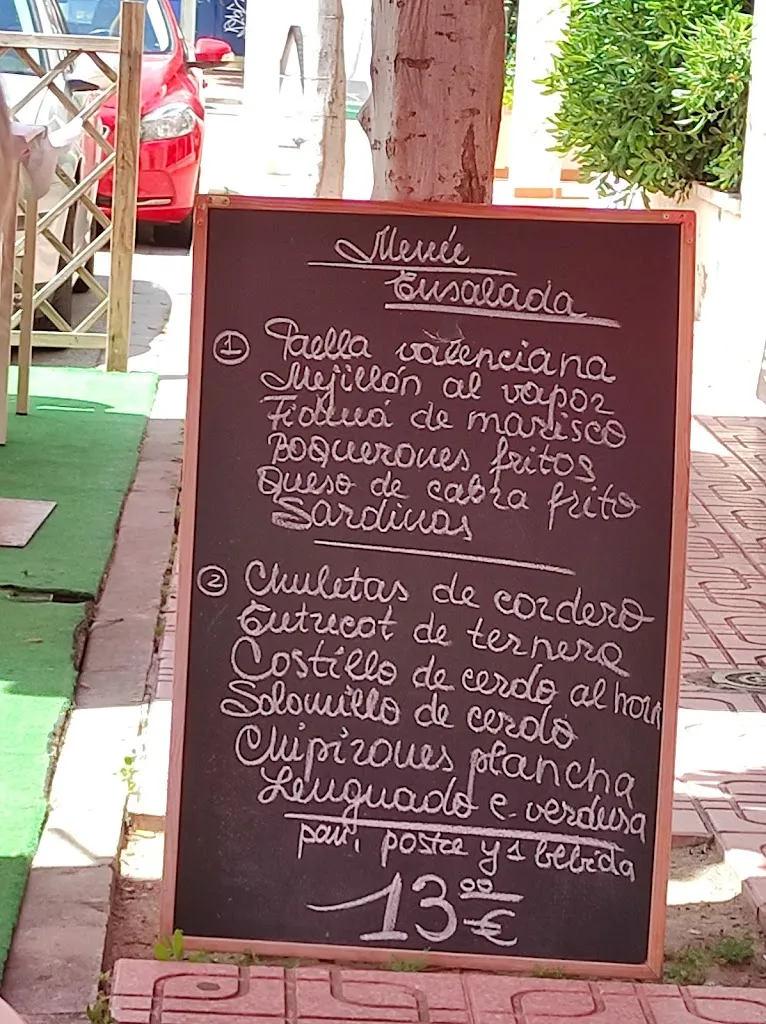 Menú
Ensalada
① Paella valenciana
Mejillón al vapor
Fideuá de marisco
Boquerones fritos
Queso de cabra frito
Sardinas
② Chuletas de cordero
Entrecot de ternera
Costillo de cerdo al horn
Solomillo de cerdo
Chipirones plancha
Lenguado c. verdusa
pan, postre y 1 bebida
13,00 €